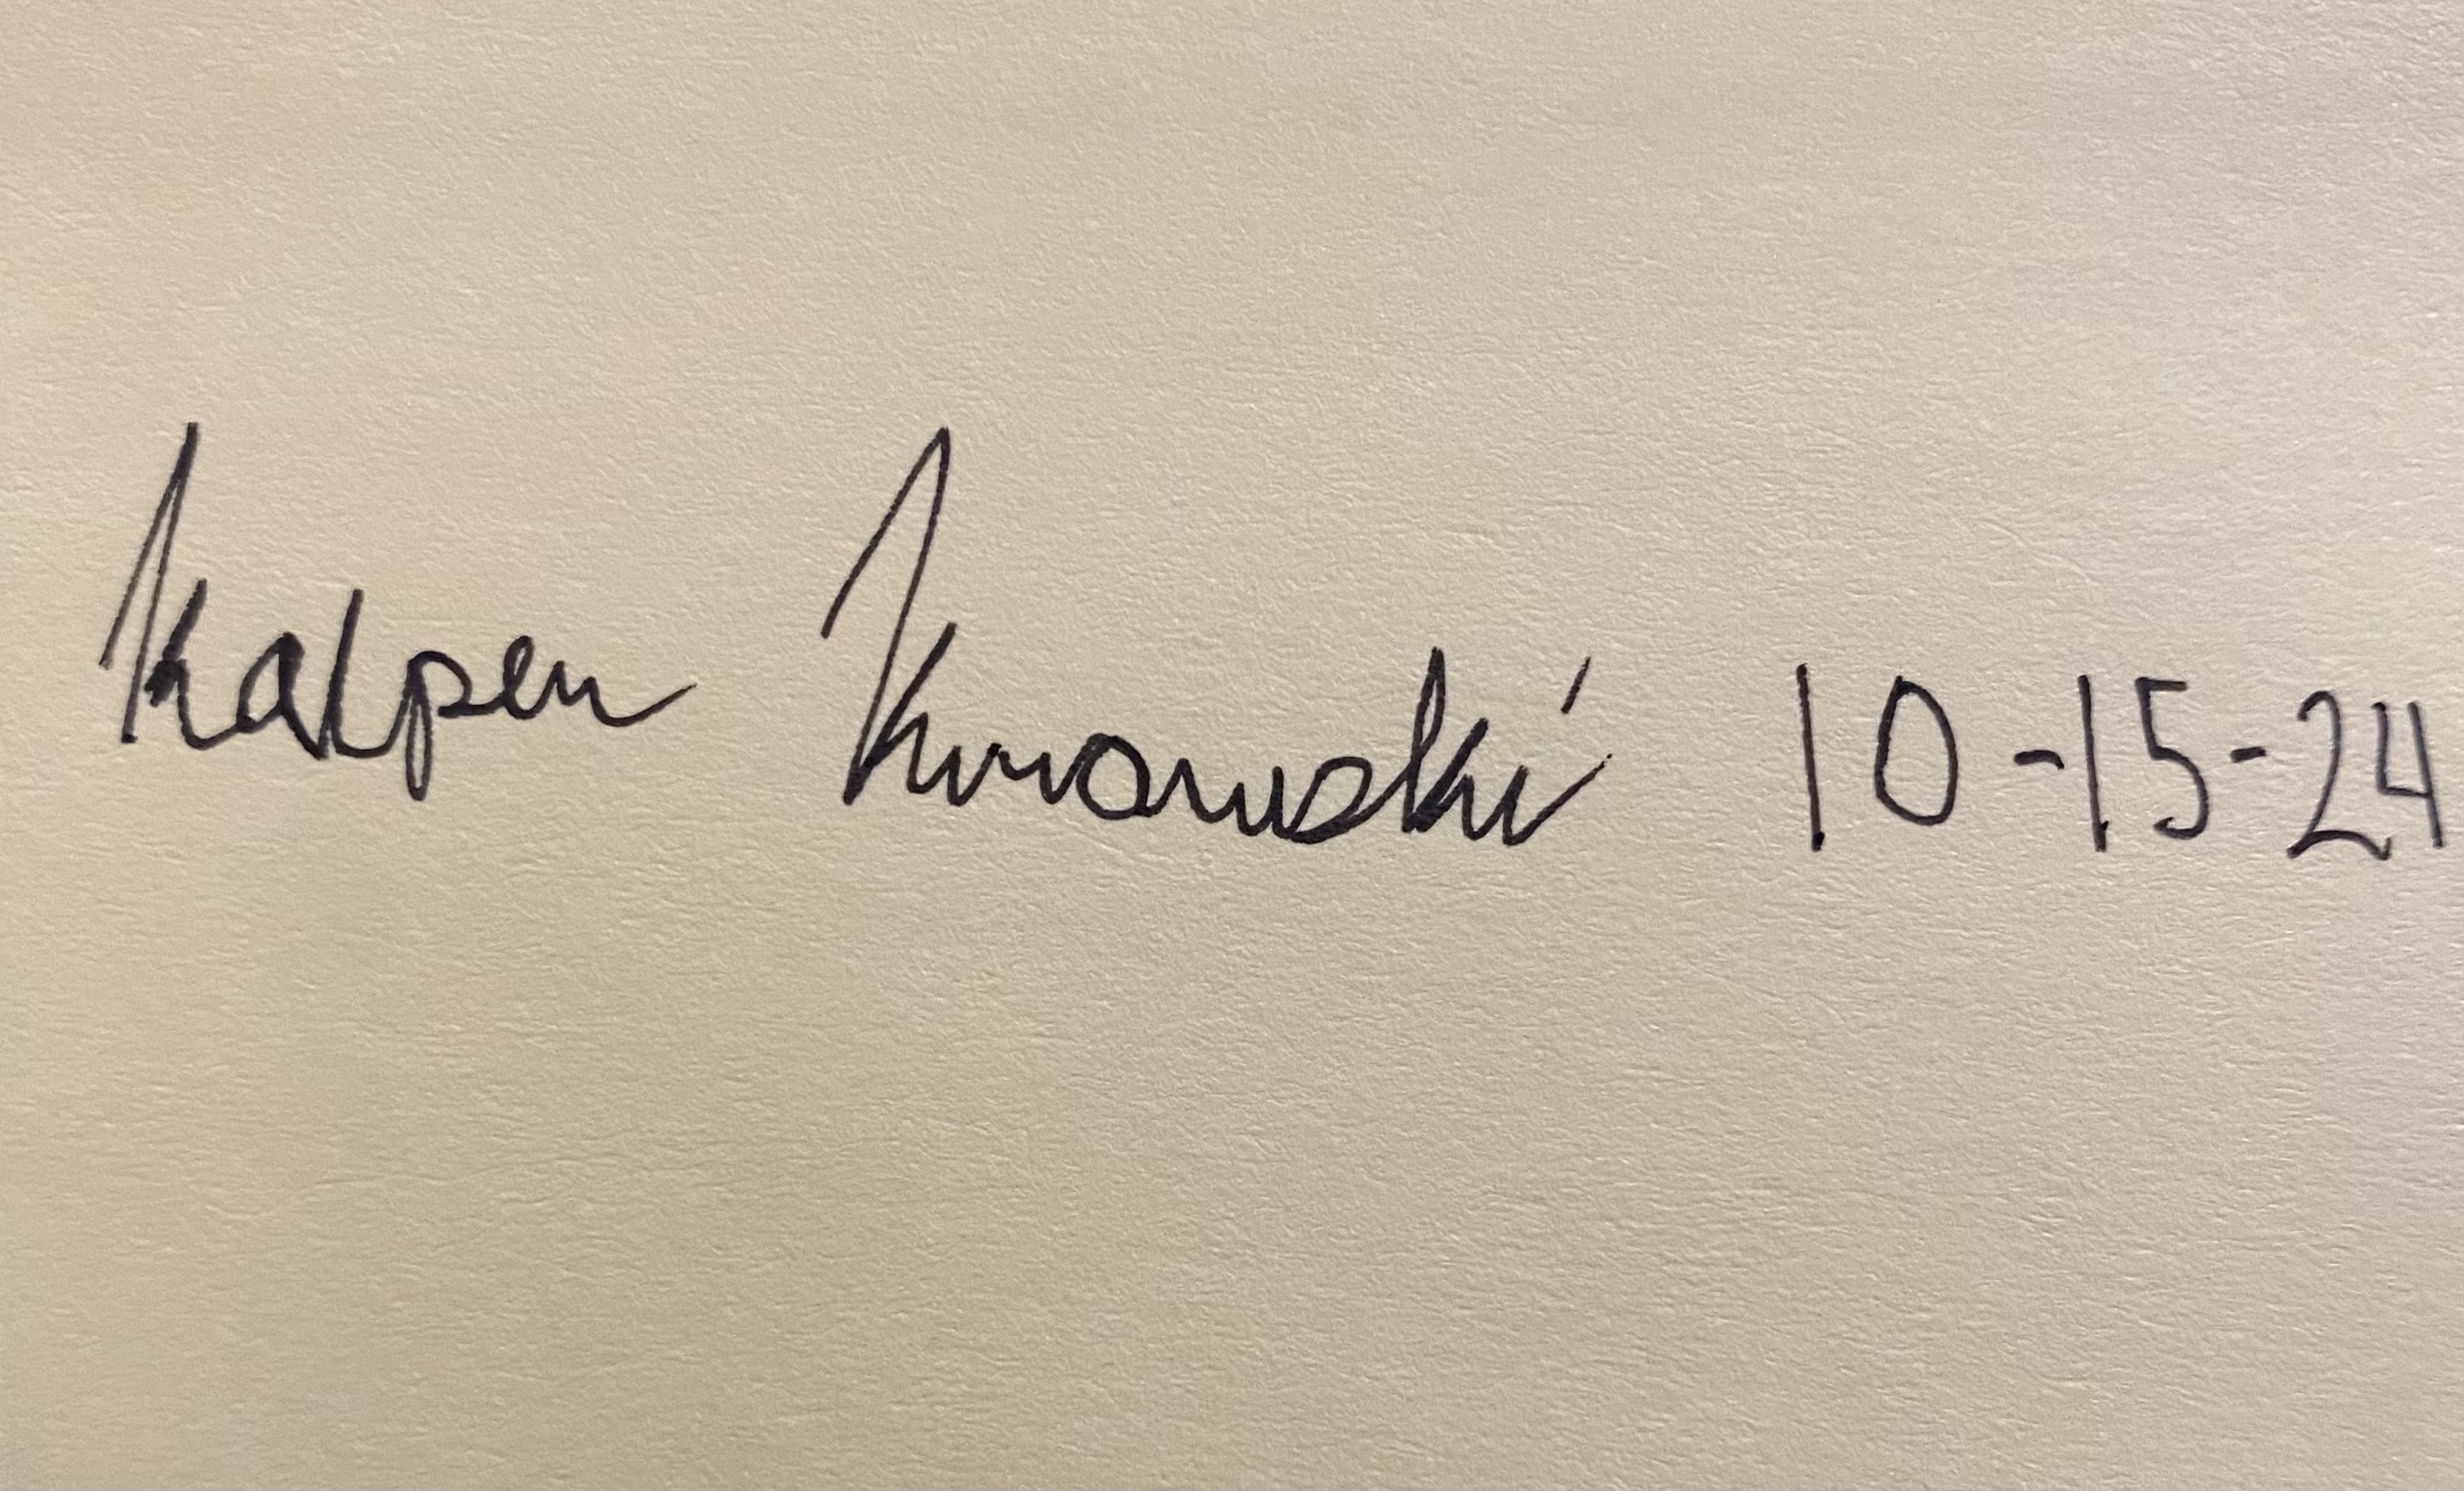 Kalpen Kurowski 10-15-24